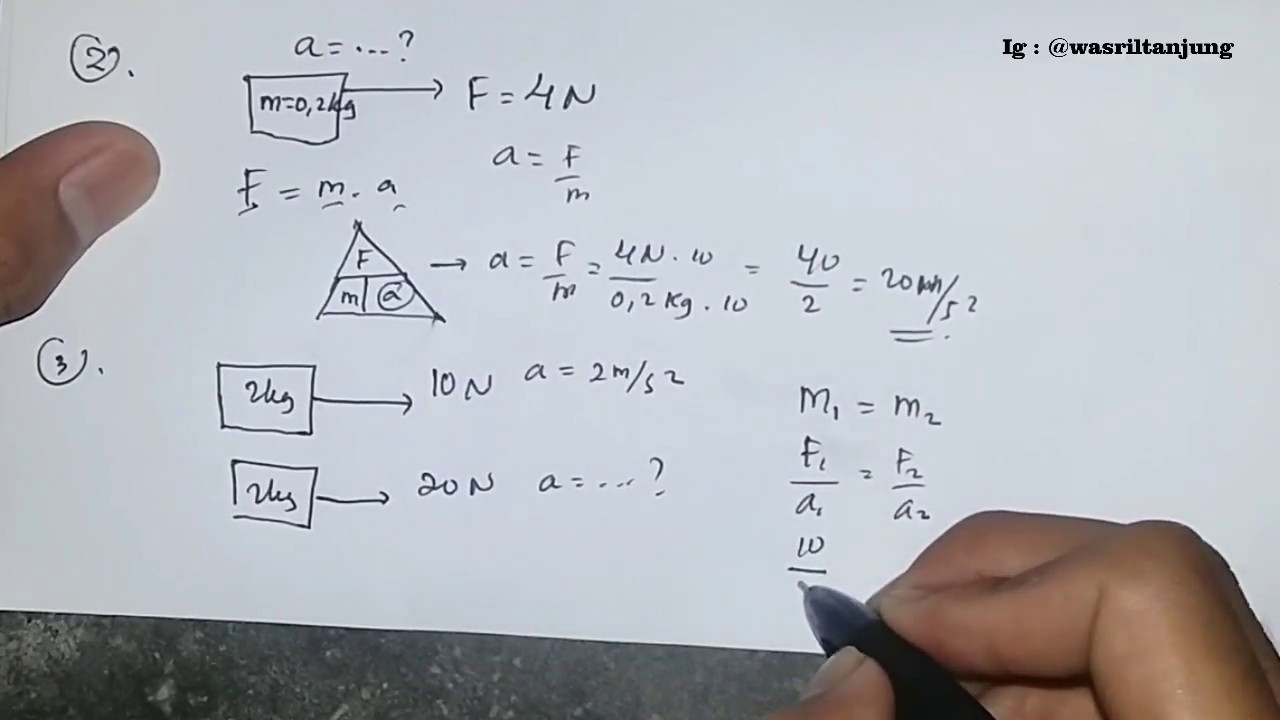 Ig : @wasriltanjung
2.
a = ...?
m=0,2kg
F = 4N
a = F/m
F = m . a
F
m a
→ a = F/m = 4N . 10 / 0,2kg . 10 = 40/2 = 20 m/s²
3.
2kg
10N a = 2m/s²
m₁ = m₂
F₁/a₁ = F₂/a₂
2kg
20N a = ...?
10